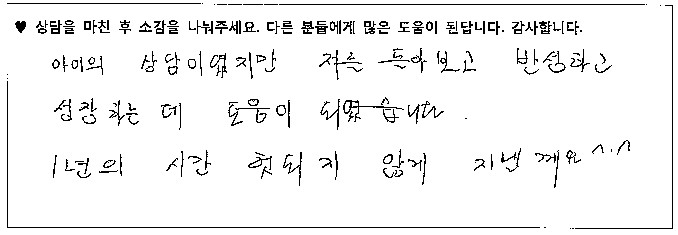 ♥ 상담을 마친 후 소감을 나눠주세요. 다른 분들에게 많은 도움이 된답니다. 감사합니다.
아이의 상담이였지만 저를 돌아보고 반성하고
성장하는 데 도움이 되였습니다.
1년의 시간 헛되지 않게 지낼께요^.^